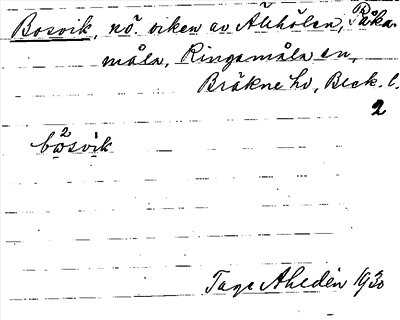 Bosvik, nö. viken av Åhölen, Påka-
måla, Ringamåla sn,
Bräkne hd, Bleck. l.
2
bo²svik
Tage Ahldén 1930